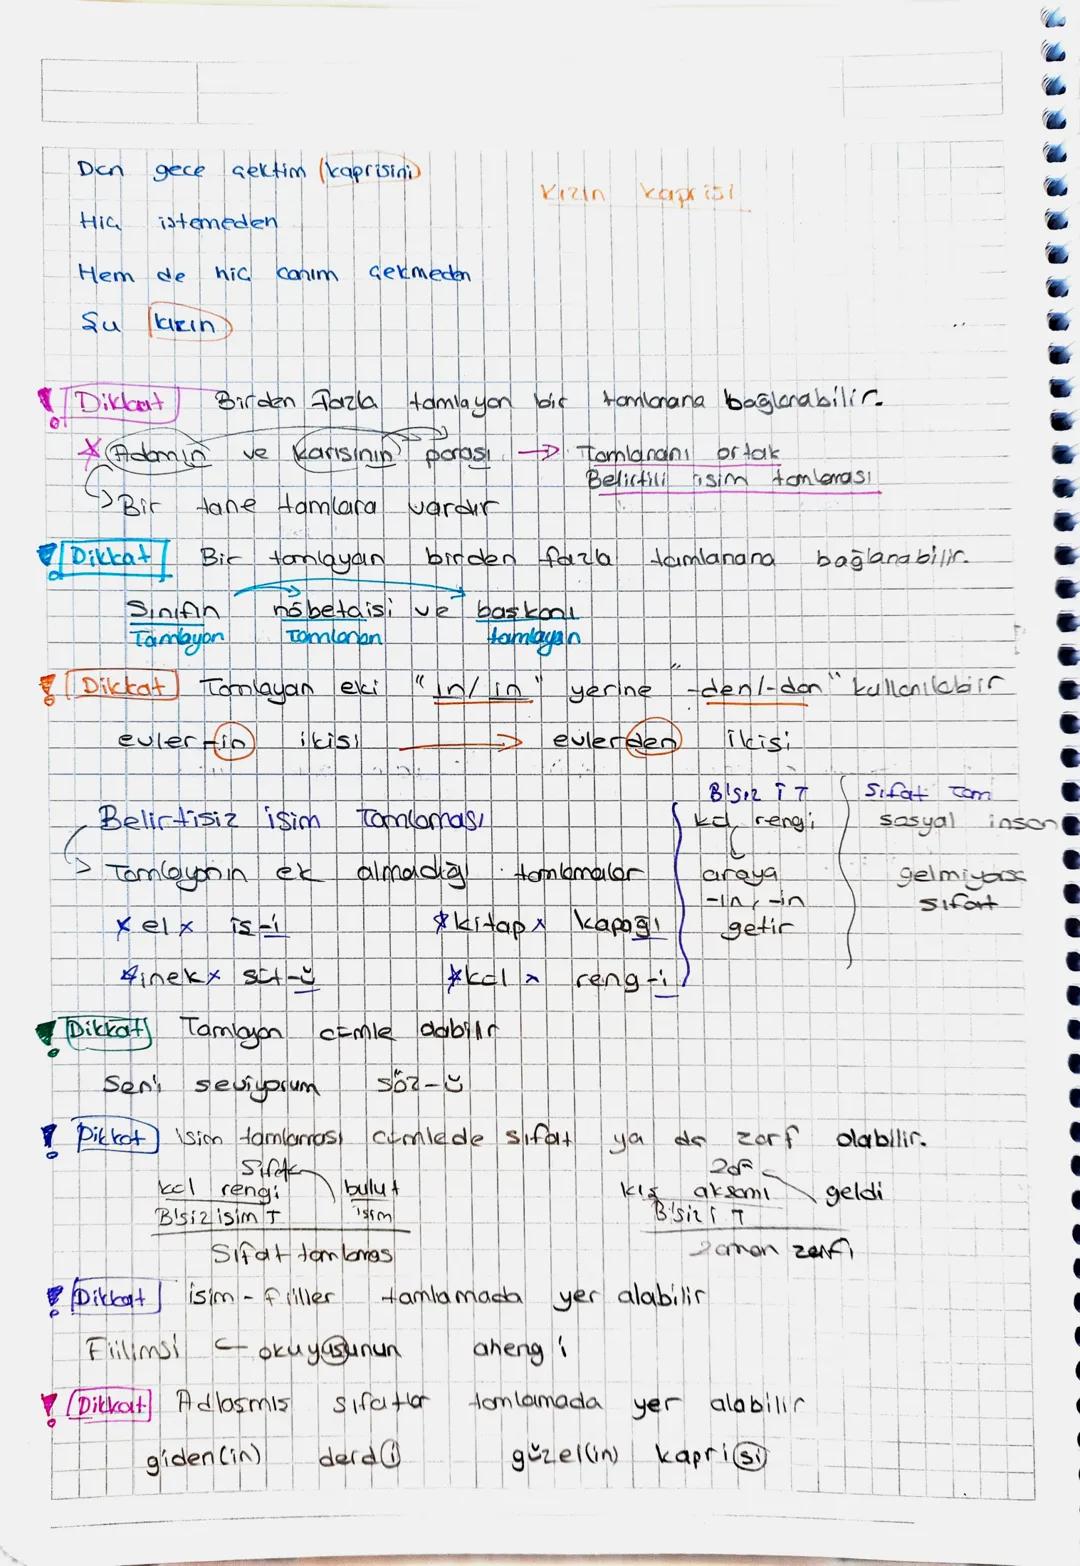 Dün gece çektim (kaprisini)
Kızın kaprisi
Hiç istemeden
Hem de hiç canım çekmeden
Şu kızın
! Dikkat Birden fazla tamlayan bir tamlanana bağlanabilir.
* Adamın ve karısının parası → Tamlananı ortak
Belirtili isim tamlaması
Bir tane tamlara vardır
! Dikkat Bir tamlayan birden fazla tamlanana bağlanabilir.
Sınıfın nöbetçisi ve başkanı
Tamlayan Tamlanan tamlayan
! Dikkat Tamlayan eki "ın/in" yerine "-den/-dan" kullanılabilir
evler-in ikisi → evlerden ikisi
B'siz İT
Sıfat Tam
Belirtisiz isim Tamlaması
kül rengi
sosyal insan
→ Tamlayanın ek almadığı tamlamalar
araya
gelmiyorsa
-ın, -in
sıfat
* el x iş-i * kitap x kapağı
getir
* inek x süt-ü * kül x reng-i
! Dikkat Tamlayan cümle olabilir
Seni seviyorum söz-ü
! Dikkat İsim tamlaması cümlede sıfat ya da zarf olabilir.
Sıfat
kül rengi bulut
kış akşamı geldi
B'siz isim T isim
B'siz İ T
Sıfat tamlaması
Zaman zarfı
! Dikkat isim-fiiller tamlamada yer alabilir
Fiilimsi ← okuyuşunun ahengi
! Dikkat Adlaşmış sıfatlar tamlamada yer alabilir
giden(in) derdi güzel(in) kaprisi